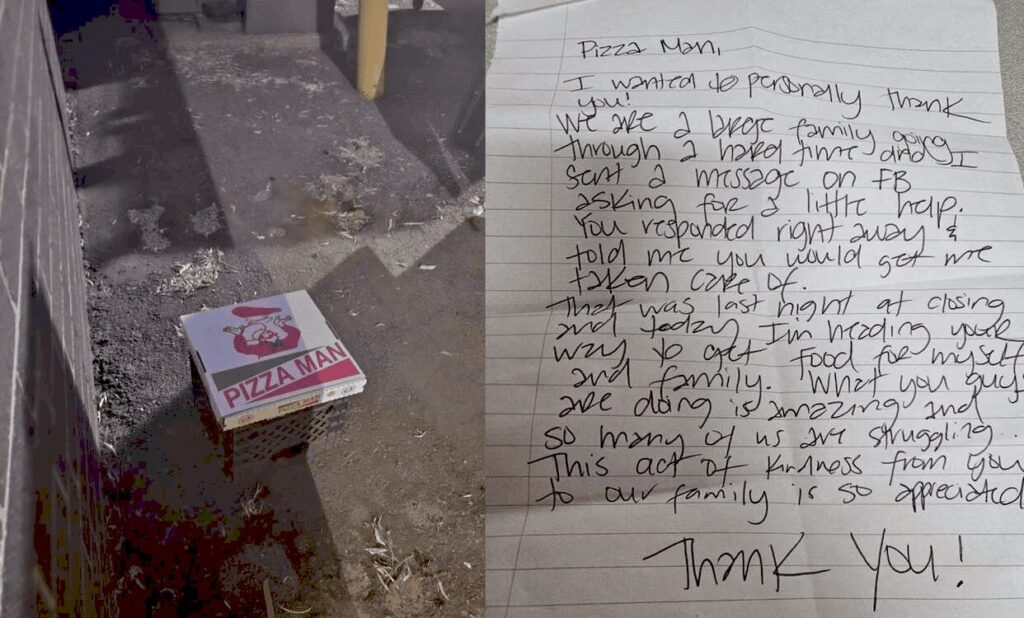 PIZZA MAN
PIZZA MAN
Pizza Man,
I wanted to personally thank
you!
We are a large family going
through a hard time and I
sent a message on FB
asking for a little help.
You responded right away &
told me you would get me
taken care of.
That was last night at closing
and today I'm heading your
way to get food for myself
and family. What you guys
are doing is amazing and
so many of us are struggling.
This act of kindness from you
to our family is so appreciated
Thank You!